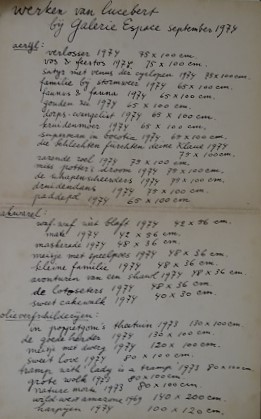 werken van lucebert
bij Galerie Espace september 1974
acryl:
verlosser 1974 75 x 100 cm.
vos & feertos 1974 75 x 100 cm.
satyr met venus der cyclopen 1974 79 x 100 cm.
familie bij stormweer 1974 65 x 100 cm.
faunus & fauna 1974 65 x 100 cm.
gouden ei 1974 65 x 100 cm.
dorps-evangelist 1974 65 x 100 cm.
kruidenmoer 1974 65 x 100 cm.
superman in 1974 69 x 100 cm.
die schlechten fürchten deine Klaue 1974
79 x 100 cm.
razende roel 1974 79 x 100 cm.
miss potter's droom 1974 79 x 100 cm.
de schapenscheerders 1974 79 x 100 cm.
druidendans 1974 79 x 100 cm.
paddepd 1974 65 x 100 cm.
akwarel:
waf-waf niet bloft 1974 42 x 56 cm.
1974 42 x 56 cm.
maskerade 1974 48 x 36 cm.
meisje met speelgoed 1974 48 x 36 cm.
kleine familie 1974 48 x 36 cm.
avonturen van een 1974 48 x 36 cm.
de lotoseters 1974 48 x 36 cm.
sweet cakewalk 1974 40 x 30 cm.
olieverfschilderijen:
in theatrum 1973 130 x 100 cm.
de goede herder 1974 130 x 100 cm.
meisje met dwerg 1974 120 x 100 cm.
sweet love 1974 80 x 100 cm.
tramp with lady is a tramp 1973 80 x 100 cm.
grote wolk 1973 80 x 100 cm.
nature morte 1973 80 x 100 cm.
1969 140 x 200 cm.
harpijen 1974 100 x 120 cm.